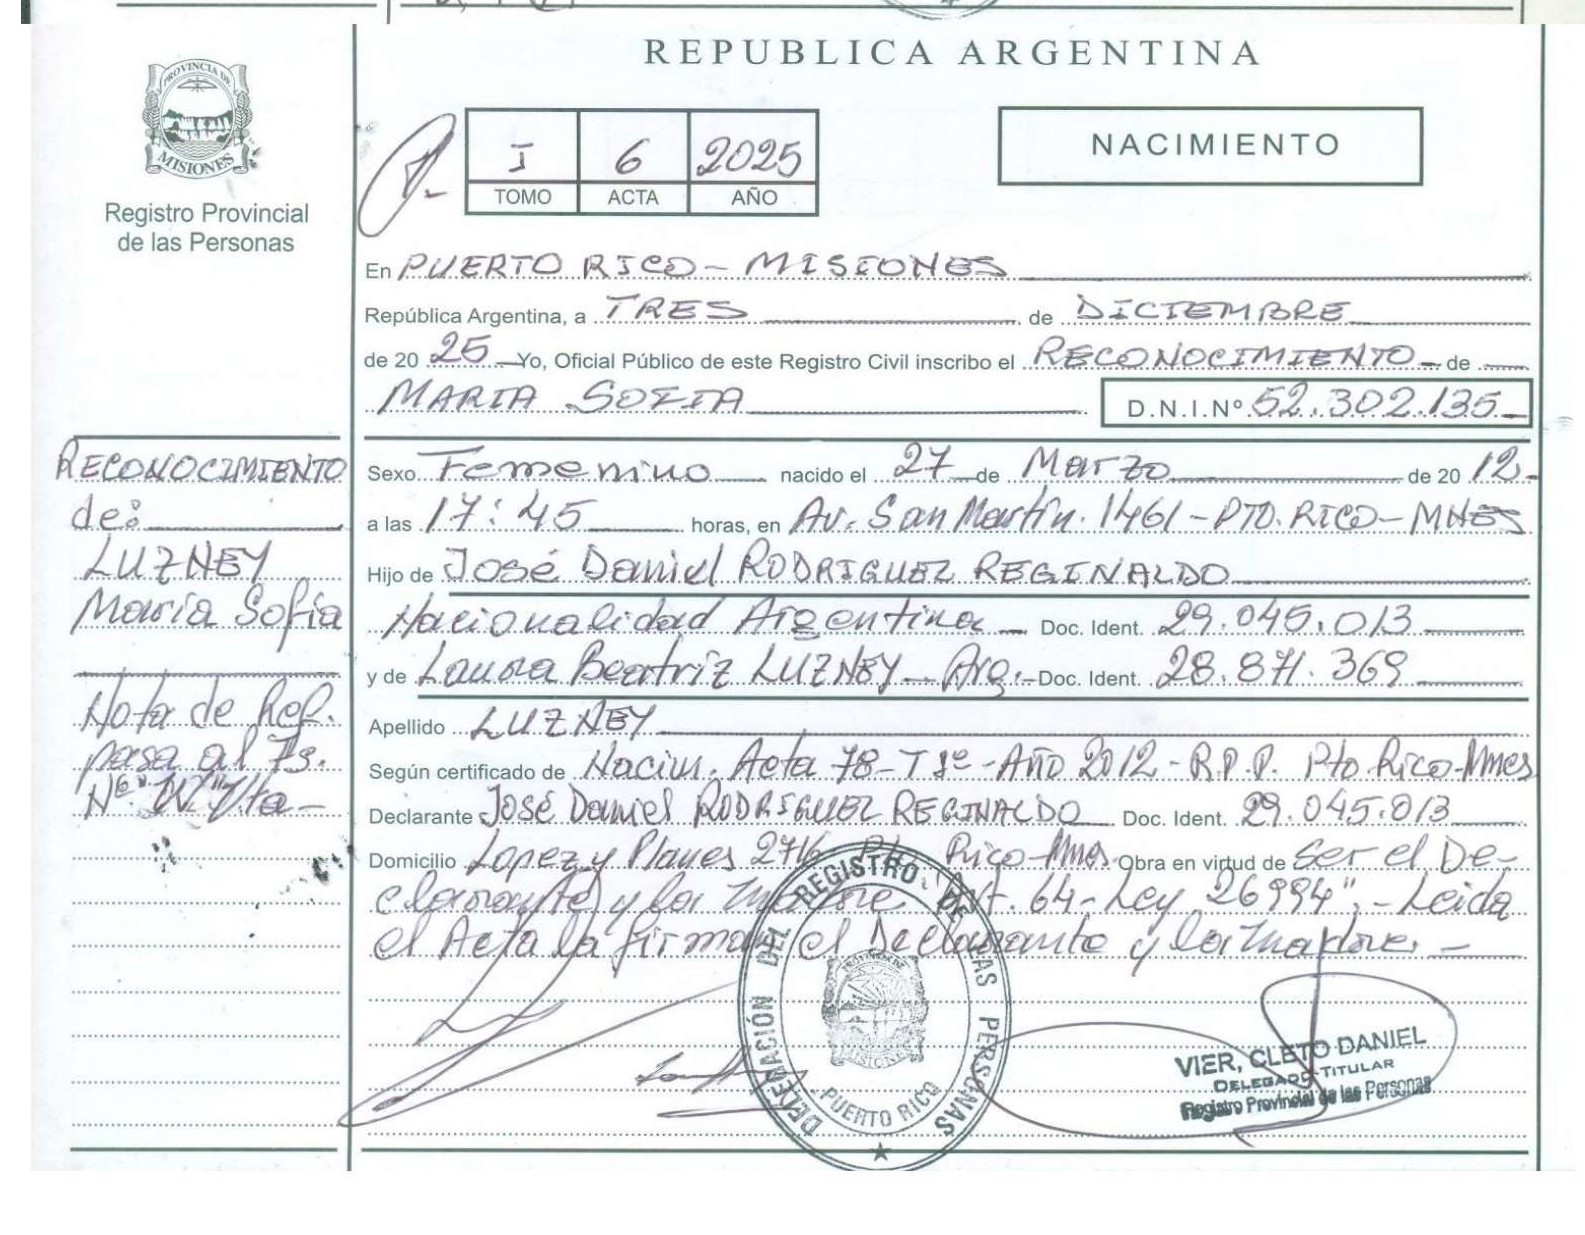 REPUBLICA ARGENTINA
PROVINCIA DE
MISIONES
Registro Provincial
de las Personas
I 6 2025
TOMO ACTA AÑO
NACIMIENTO
En PUERTO RICO - MISIONES
República Argentina, a TRES de DICIEMBRE
de 20 25 Yo, Oficial Público de este Registro Civil inscribo el RECONOCIMIENTO - de
MARIA SOFIA D.N.I.Nº 52.302.135
RECONOCIMIENTO
de:
LUZNEY
María Sofía
Nota de Ref.
pasa al Fs.
Vta -
Sexo Femenino nacido el 27 de Marzo de 20 12.-
a las 17:45 horas, en Av. San Martín. 1461 - PTO. RICO - MNES
Hijo de José Daniel RODRIGUEZ REGINALDO
Nacionalidad Argentina - Doc. Ident. 29.045.013
y de Laura Beatriz LUZNEY - Arg. - Doc. Ident. 28.871.369
Apellido LUZNEY
Según certificado de Nacim. Acta 78 - T 1º - Año 2012 - R.P.P. Pto Rico - Mnes
Declarante José Daniel RODRIGUEZ REGINALDO Doc. Ident. 29.045.013
Domicilio Lopez y Planes 2716 Pto Rico - Mnes Obra en virtud de Ser el De-
clarante y la Madre "Art. 64 - Ley 26994". - Leida
el Acta la firman el Declarante y la Madre. -
DELEGACIÓN DEL REGISTRO DE LAS PERSONAS
PROVINCIA DE
MISIONES
PUERTO RICO
VIER, CLETO DANIEL
DELEGADO TITULAR
Registro Provincial de las Personas